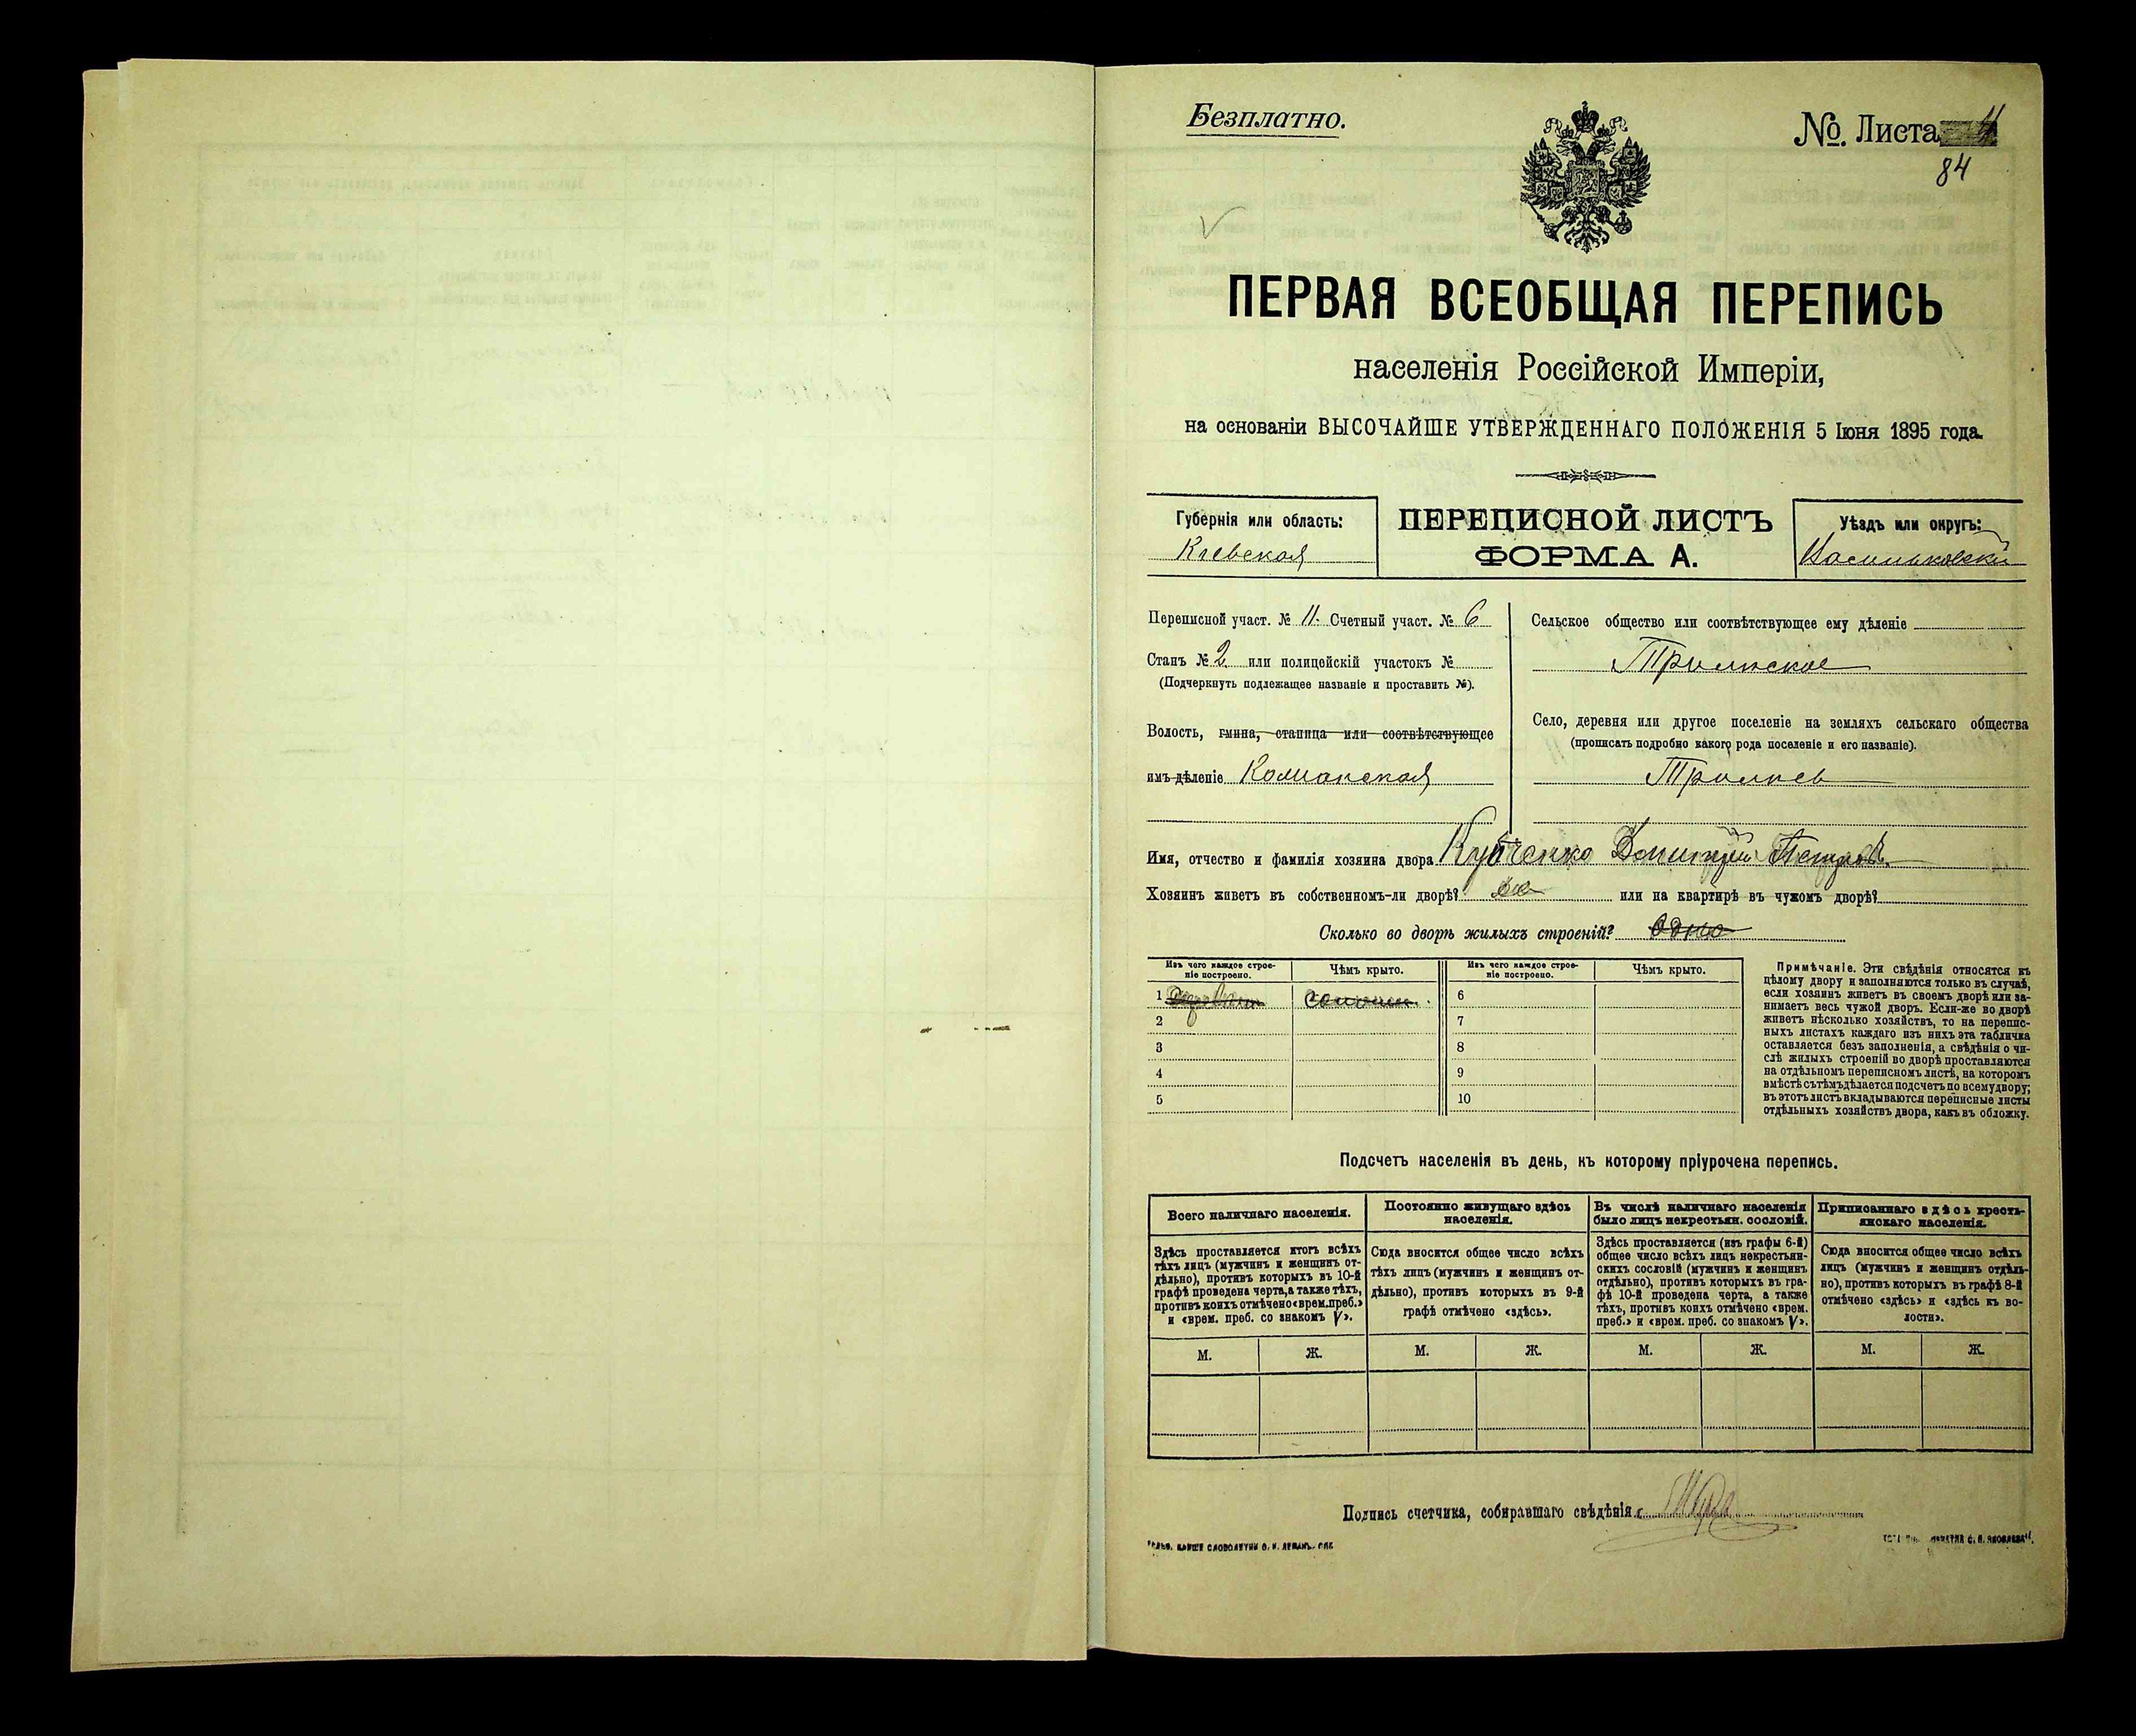 Безплатно.
№. Листа
84
ПЕРВАЯ ВСЕОБЩАЯ ПЕРЕПИСЬ
населенія Россійской Имперіи,
на основаніи ВЫСОЧАЙШЕ УТВЕРЖДЕННАГО ПОЛОЖЕНІЯ 5 Іюня 1895 года.
Губернія или область:
Кіевская
ПЕРЕПИСНОЙ ЛИСТЪ
ФОРМА А.
Уѣздъ или округъ:
Васильковскій
Переписной участ. № 11. Счетный участ. № 6
Станъ № 2 или полицейскій участокъ №
(Подчеркнуть подлежащее названіе и проставить №).
Волость, гмина, станица или соотвѣтствующее
имъ дѣленіе
Сельское общество или соотвѣтствующее ему дѣленіе
Трилиское
Село, деревня или другое поселеніе на земляхъ сельскаго общества
(прописать подробно какого рода поселеніе и его названіе).
Имя, отчество и фамилія хозяина двора Дмитрій Петровъ
Хозяинъ живетъ въ собственномъ-ли дворѣ? или на квартирѣ въ чужомъ дворѣ?
Сколько во дворѣ жилыхъ строеній? Одно
Изъ чего каждое строе-
ніе построено.
Чѣмъ крыто.
Изъ чего каждое строе-
ніе построено.
Чѣмъ крыто.
1 соломою 6
2 7
3 8
4 9
5 10
Примѣчаніе. Эти свѣдѣнія относятся къ
цѣлому двору и заполняются только въ случаѣ,
если хозяинъ живетъ въ своемъ дворѣ или за-
нимаетъ весь чужой дворъ. Если-же во дворѣ
живетъ нѣсколько хозяйствъ, то на перепис-
ныхъ листахъ каждаго изъ нихъ эта табличка
оставляется безъ заполненія, а свѣдѣнія о чи-
слѣ жилыхъ строеній во дворѣ проставляются
на отдѣльномъ переписномъ листѣ, на которомъ
вмѣстѣ съ тѣмъ дѣлается подсчетъ по всему двору;
въ этотъ листъ вкладываются переписные листы
отдѣльныхъ хозяйствъ двора, какъ въ обложку.
Подсчетъ населенія въ день, къ которому пріурочена перепись.
Всего наличнаго населенія.
Постоянно живущаго здѣсь
населенія.
Въ числѣ наличнаго населенія
было лицъ некрестьян. сословій.
Приписаннаго здѣсь кресть-
янскаго населенія.
Здѣсь проставляется итогъ всѣхъ
тѣхъ лицъ (мужчинъ и женщинъ от-
дѣльно), противъ которыхъ въ 10-й
графѣ проведена черта, а также тѣхъ,
противъ коихъ отмѣчено «врем. преб.»
и «врем. преб. со знакомъ V».
Сюда вносится общее число всѣхъ
тѣхъ лицъ (мужчинъ и женщинъ от-
дѣльно), противъ которыхъ въ 9-й
графѣ отмѣчено «здѣсь».
Здѣсь проставляется (изъ графы 6-й)
общее число всѣхъ лицъ некрестьян-
скихъ сословій (мужчинъ и женщинъ
отдѣльно), противъ которыхъ въ гра-
фѣ 10-й проведена черта, а также
тѣхъ, противъ коихъ отмѣчено «врем.
преб.» и «врем. преб. со знакомъ V».
Сюда вносится общее число всѣхъ
лицъ (мужчинъ и женщинъ отдѣль-
но), противъ которыхъ въ графѣ 8-й
отмѣчено «здѣсь» и «здѣсь къ во-
лости».
М. Ж. М. Ж. М. Ж. М. Ж.
Подпись счетчика, собиравшаго свѣдѣнія